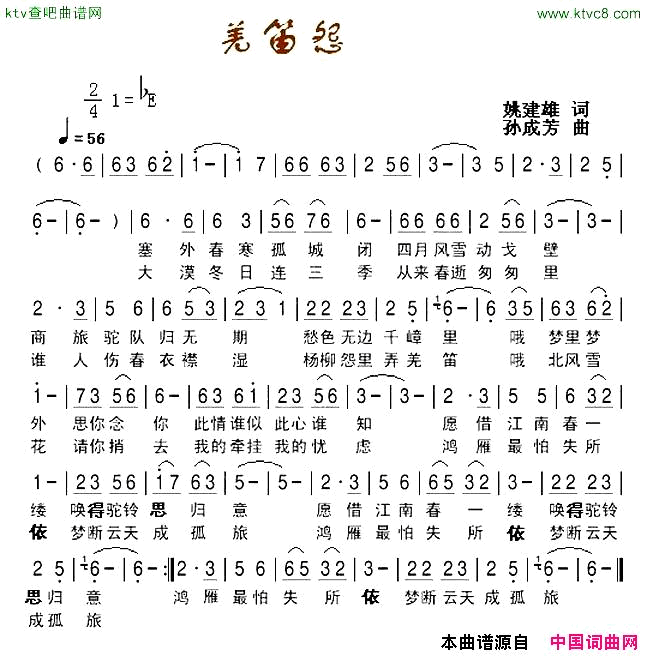 ktv查吧曲谱网
http://www.ktvc8.com
羌笛怨
2/4 1=♭E
♩=56
姚建雄 词
孙成芳 曲
( 6· 6 | 63 62 | 1 - | 1 7 | 66 63 | 2 56 | 3 - | 3 5 | 2· 3 | 2 5 |
6 - | 6 - ) | 6 6 | 6 3 | 56 76 | 6 - | 66 66 | 2 56 | 3 - | 3 - |
塞 外 春 寒 孤 城 闭 四月 风雪 动 戈 壁
大 漠 冬 日 连 三 季 从来 春逝 匆 匆 里
2· 3 | 5 6 | 6 53 | 23 1 | 22 23 | 2 5 | 6 - | 6 35 | 63 62 |
商 旅 驼 队 归 无 期 愁色 无边 千 嶂 里 哦 梦里 梦
谁 人 伤 春 衣 襟 湿 杨柳 怨里 弄 羌 笛 哦 北风 雪
1 - | 73 56 | 6 - | 63 61 | 23 56 | 3 - | 3 - | 2· 3 | 5 6 | 65 32 |
外 思你 念 你 此情 谁似 此心 谁 知 愿 借 江 南 春 一
花 请你 捎 去 我的 牵挂 我的 忧 虑 鸿 雁 最 怕 失 所
1 - | 22 23 | 5 6 | 17 63 | 5 - | 5 - | 2· 3 | 5 6 | 65 32 | 3 - | 22 23 |
缕 唤得 驼铃 思 归 意 愿 借 江 南 春 一 缕 唤得 驼铃
依 梦断 云天 成 孤 旅 鸿 雁 最 怕 失 所 依 梦断 云天
2 5 | 6 - | 6 - :| 2· 3 | 5 6 | 65 32 | 3 - | 22 23 | 2 5 | 6 - | 6 - ‖
思 归 意 鸿 雁 最 怕 失 所 依 梦断 云天 成 孤 旅
成 孤 旅
本曲谱源自 中国词曲网
www.cnscore.com